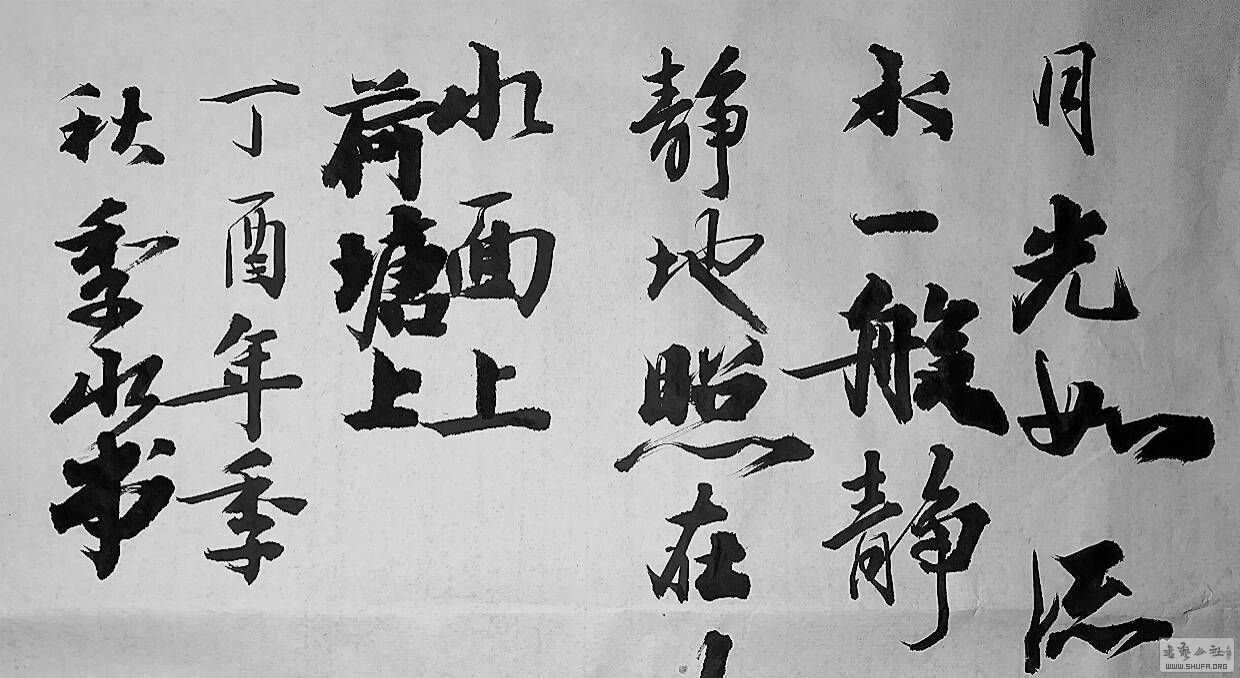 月光如流
水一般静
静地照在
水面上
荷塘上
丁酉年季
秋季水书
书艺公社
WWW.SHUFA.ORG